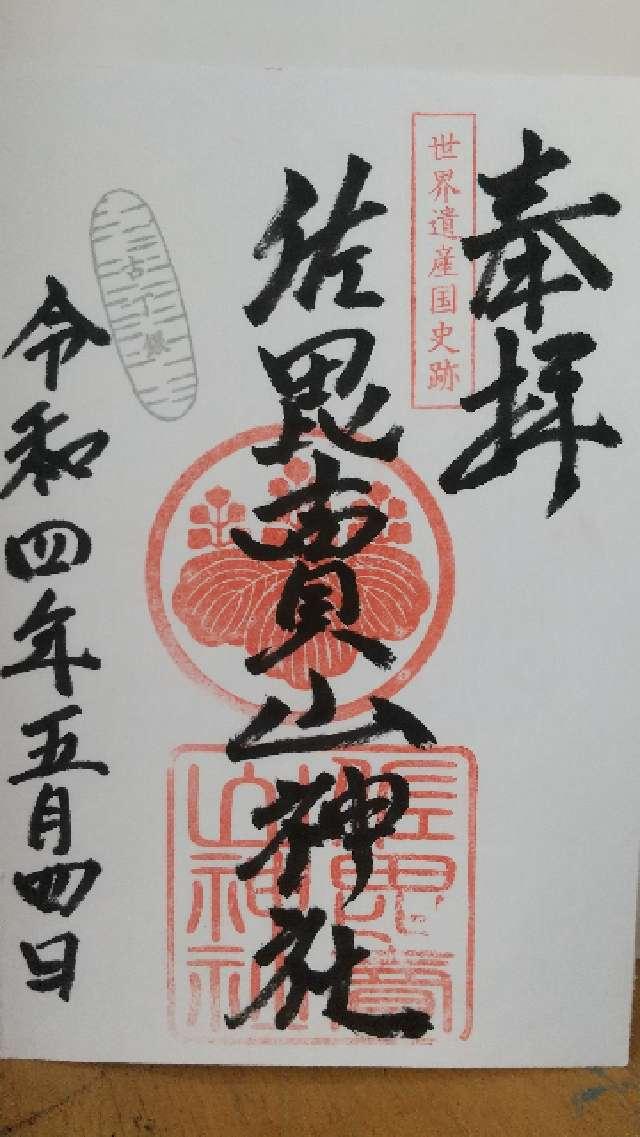 奉拝
世界遺産国史跡
佐毘賣山神社
佐毘賣山神社
古丁銀
令和四年五月四日